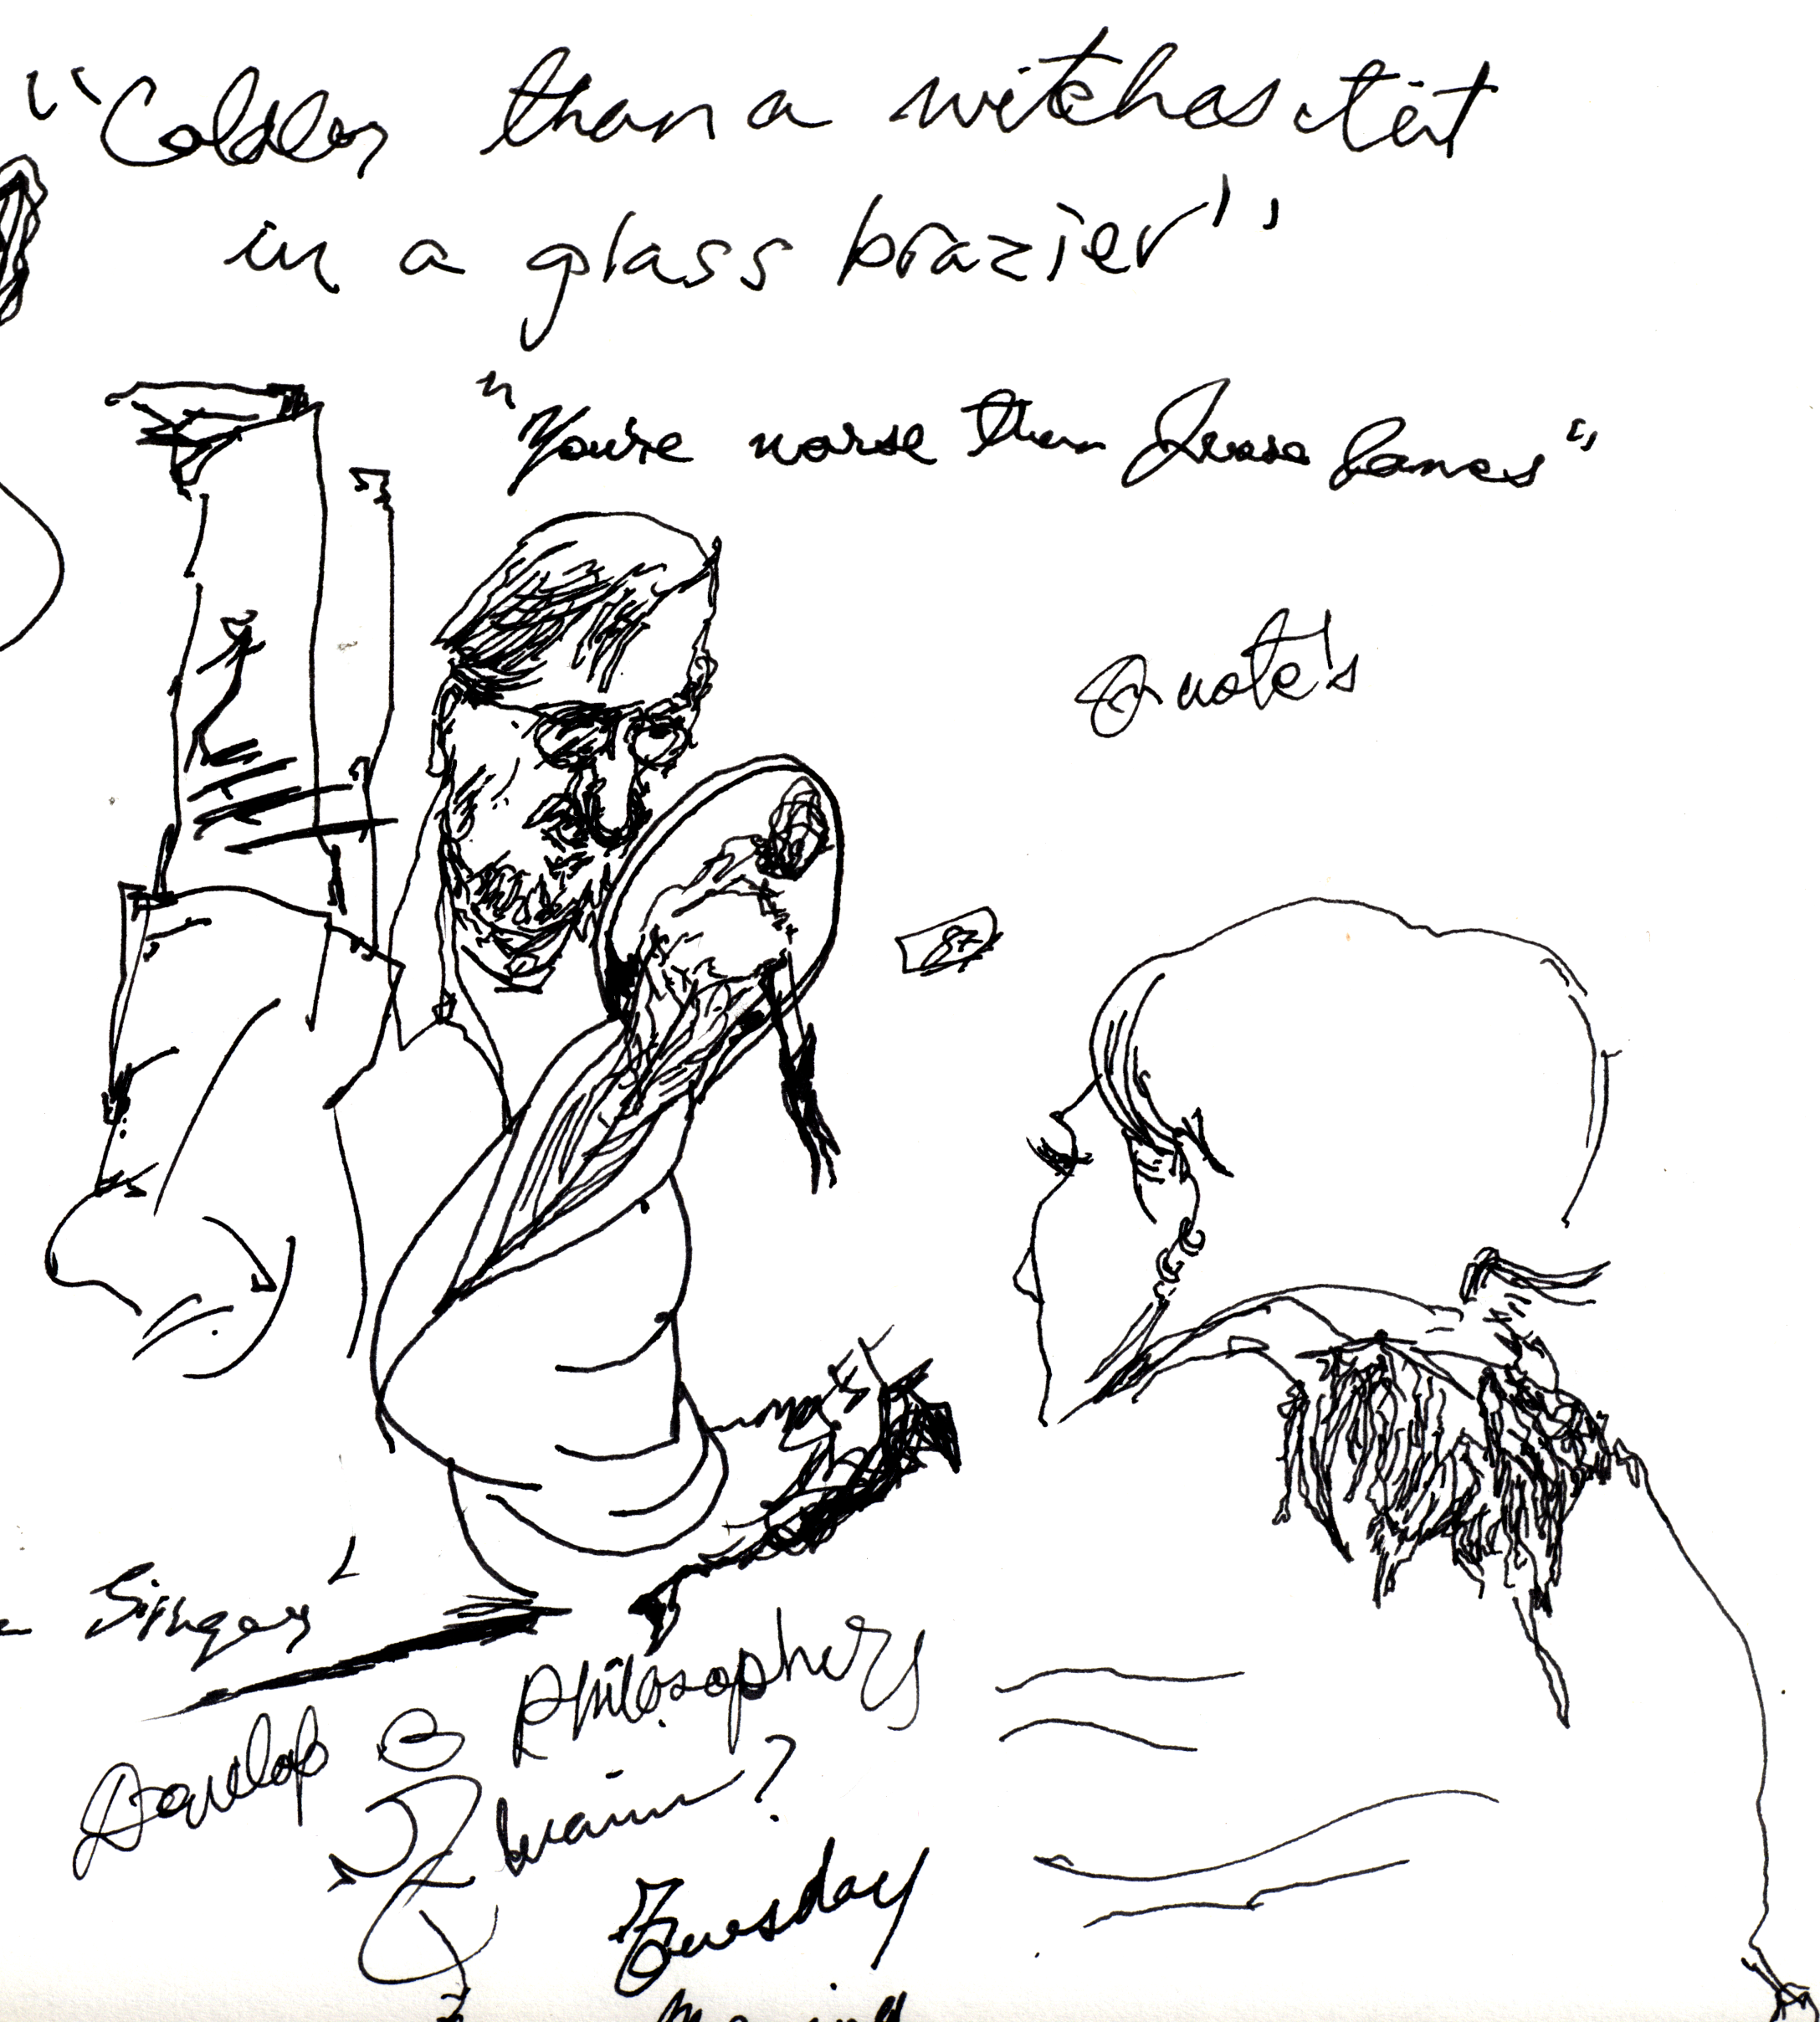 "Colder than a witches tit
in a glass brazier"
"You're worse than Jesse James"
Quote's
87
Singer'
Develop a philosophers
brain?
Tuesday